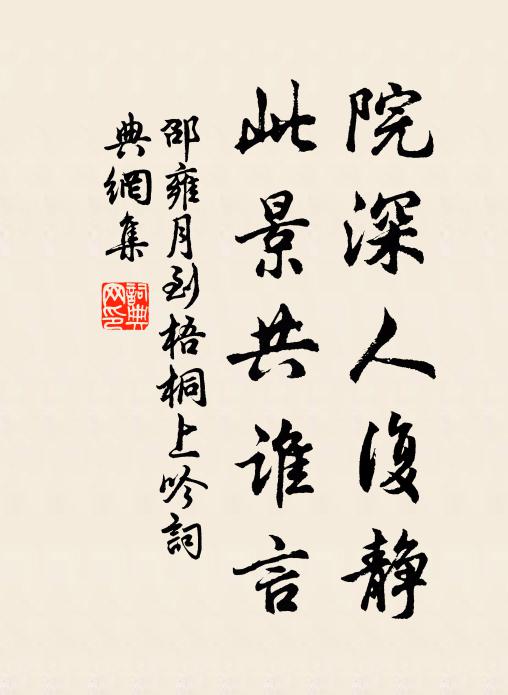 院深人復静
此景共谁言
邵雍月到梧桐上吟詞
典網集
詞典
网印